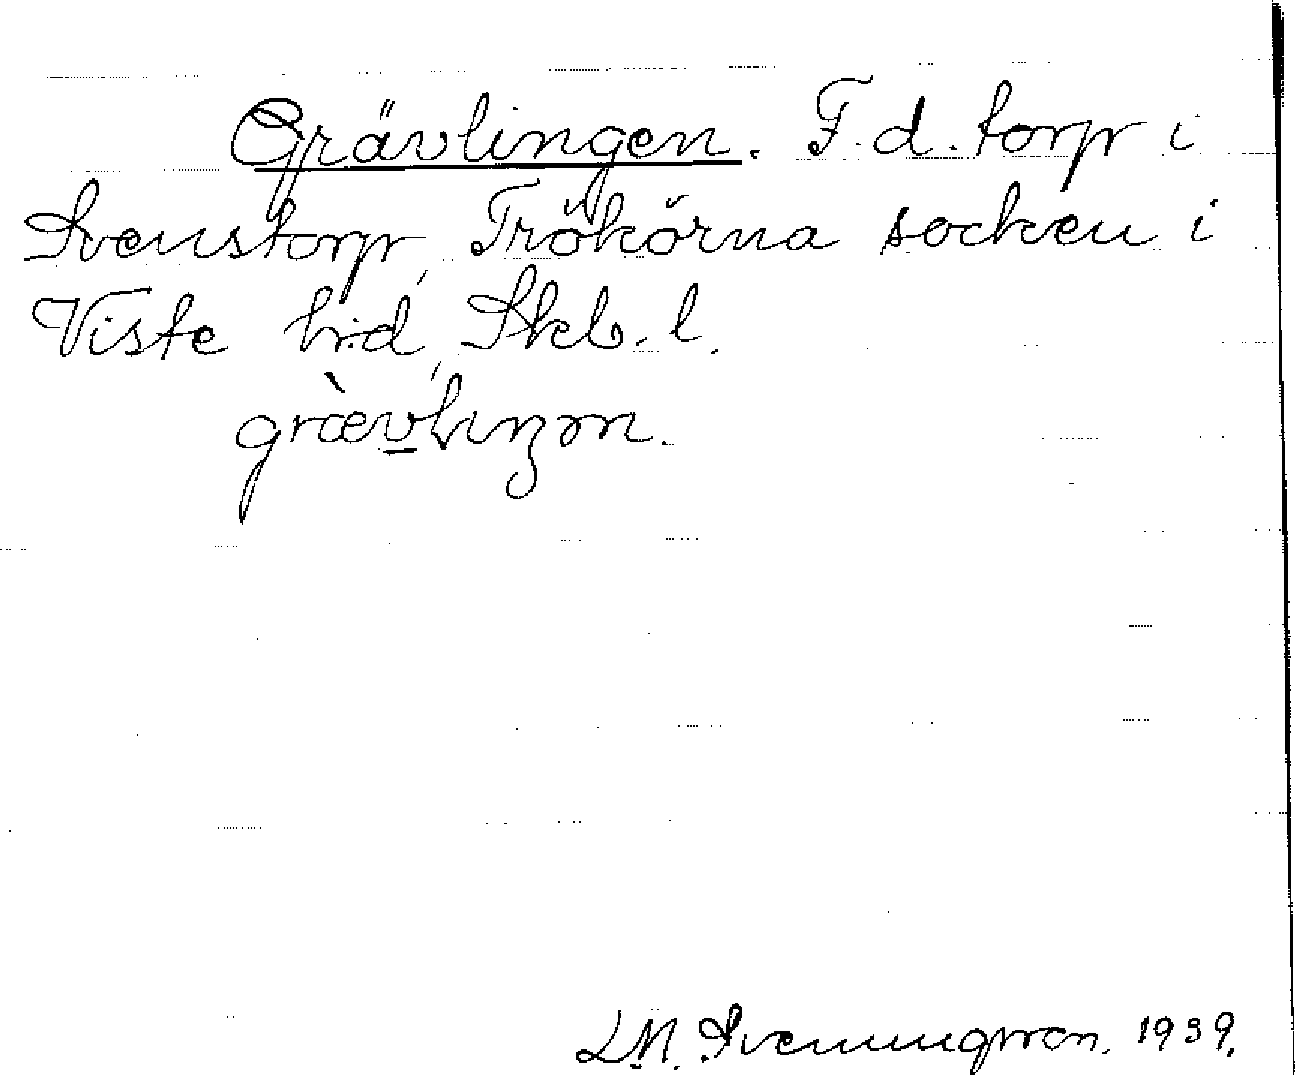 Grävlingen. F.d. torp i
Svenstorp, Trökörna socken i
Viste h:d, Skb. l.
grævlıŋən.
L.M. Svenungsson. 1939.